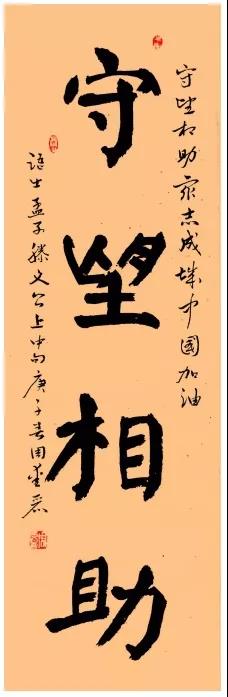 守望相助衆志成城中國加油
守望相助
語出孟子滕文公上中句庚子春周